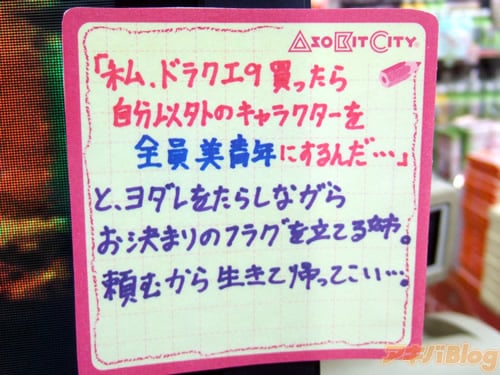 AsoBitCity
「私、ドラクエ9 買ったら
自分以外のキャラクターを
全員美青年にするんだ…」
と、ヨダレをたらしながら
お決まりのフラグを立てる姉。
頼むから生きて帰ってこい…。
アキバBlog